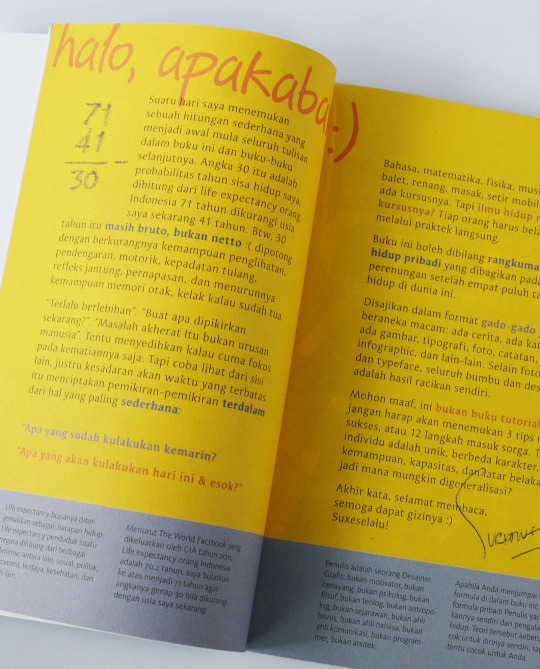 halo, apakabar:)
71
41
30
Suatu hari saya menemukan
sebuah hitungan sederhana yang
menjadi awal mula seluruh tulisan
dalam buku ini dan buku-buku
selanjutnya. Angka 30 itu adalah
probabilitas tahun sisa hidup saya,
dihitung dari life expectancy orang
Indonesia 71 tahun dikurangi usia
saya sekarang 41 tahun. Btw, 30
tahun itu masih bruto, bukan netto :( dipotong
dengan berkurangnya kemampuan penglihatan,
pendengaran, motorik, kepadatan tulang,
refleks jantung, pernapasan, dan menurunnya
kemampuan memori otak, kelak kalau sudah tua.
"Terlalu berlebihan". "Buat apa dipikirkan
sekarang?". "Masalah akherat Itu bukan urusan
manusia". Tentu menyedihkan kalau cuma fokus
pada kematiannya saja. Tapi coba lihat dari sisi
lain, justru kesadaran akan waktu yang terbatas
itu menciptakan pemikiran-pemikiran terdalam
dari hal yang paling sederhana:
"Apa yang sudah kulakukan kemarin?
"Apa yang akan kulakukan hari ini & esok?"
Life expectancy biasanya diter-
jemahkan sebagai: harapan hidup.
Life expectancy penduduk suatu
negara dihitung dari berbagai
dimensi, antara lain: sosial, politik,
ekonomi, budaya, kesehatan, dan
lain-lain.
Menurut The World Factbook yang
dikeluarkan oleh CIA tahun 2011,
Life expectancy orang Indonesia
adalah 70.2 tahun, saya bulatkan
ke atas, menjadi 71 tahun agar
angkanya genap 30 bila dikurangi
dengan usia saya sekarang
Bahasa, matematika, fisika, mus
balet, renang, masak, setir mobil
ada kursusnya. Tapi ilmu hidup
kursusnya? Tiap orang harus bela
melalui praktek langsung.
Buku ini boleh dibilang rangkuma
hidup pribadi yang dibagikan pada
perenungan setelah empat puluh ta
hidup di dunia ini.
Disajikan dalam format gado-gado
beraneka macam: ada cerita, ada kat
ada gambar, tipografi, foto, catatan,
infographic, dan lain-lain. Selain foto
dan typeface, seluruh bumbu dan des
adalah hasil racikan sendiri.
Mohon maaf, ini bukan buku tutorial
jangan harap akan menemukan 3 tips
sukses, atau 12 langkah masuk sorga. T
individu adalah unik, berbeda karakter,
kemampuan, kapasitas, dan latar belaka
jadi mana mungkin digeneralisasi?
Akhir kata, selamat membaca,
semoga dapat gizinya :)
Suxeselalu!
Penulis adalah seorang Desainer
Grafis, bukan motivator, bukan
cenayang, bukan psikolog, bukan
filsuf, bukan teolog, bukan antropo-
log, bukan sejarawan, bukan ahli
bisnis, bukan ahli bahasa, bukan
ahli komunikasi, bukan program-
mer, bukan arsitek.
Apabila Anda menjumpai
formula di dalam buku ini,
formula pribadi Penulis yan
kannya sendiri dari pengala
hidup. Teori tersebut kebetu
cok untuk dirinya sendiri, tap
tentu cocok untuk Anda.